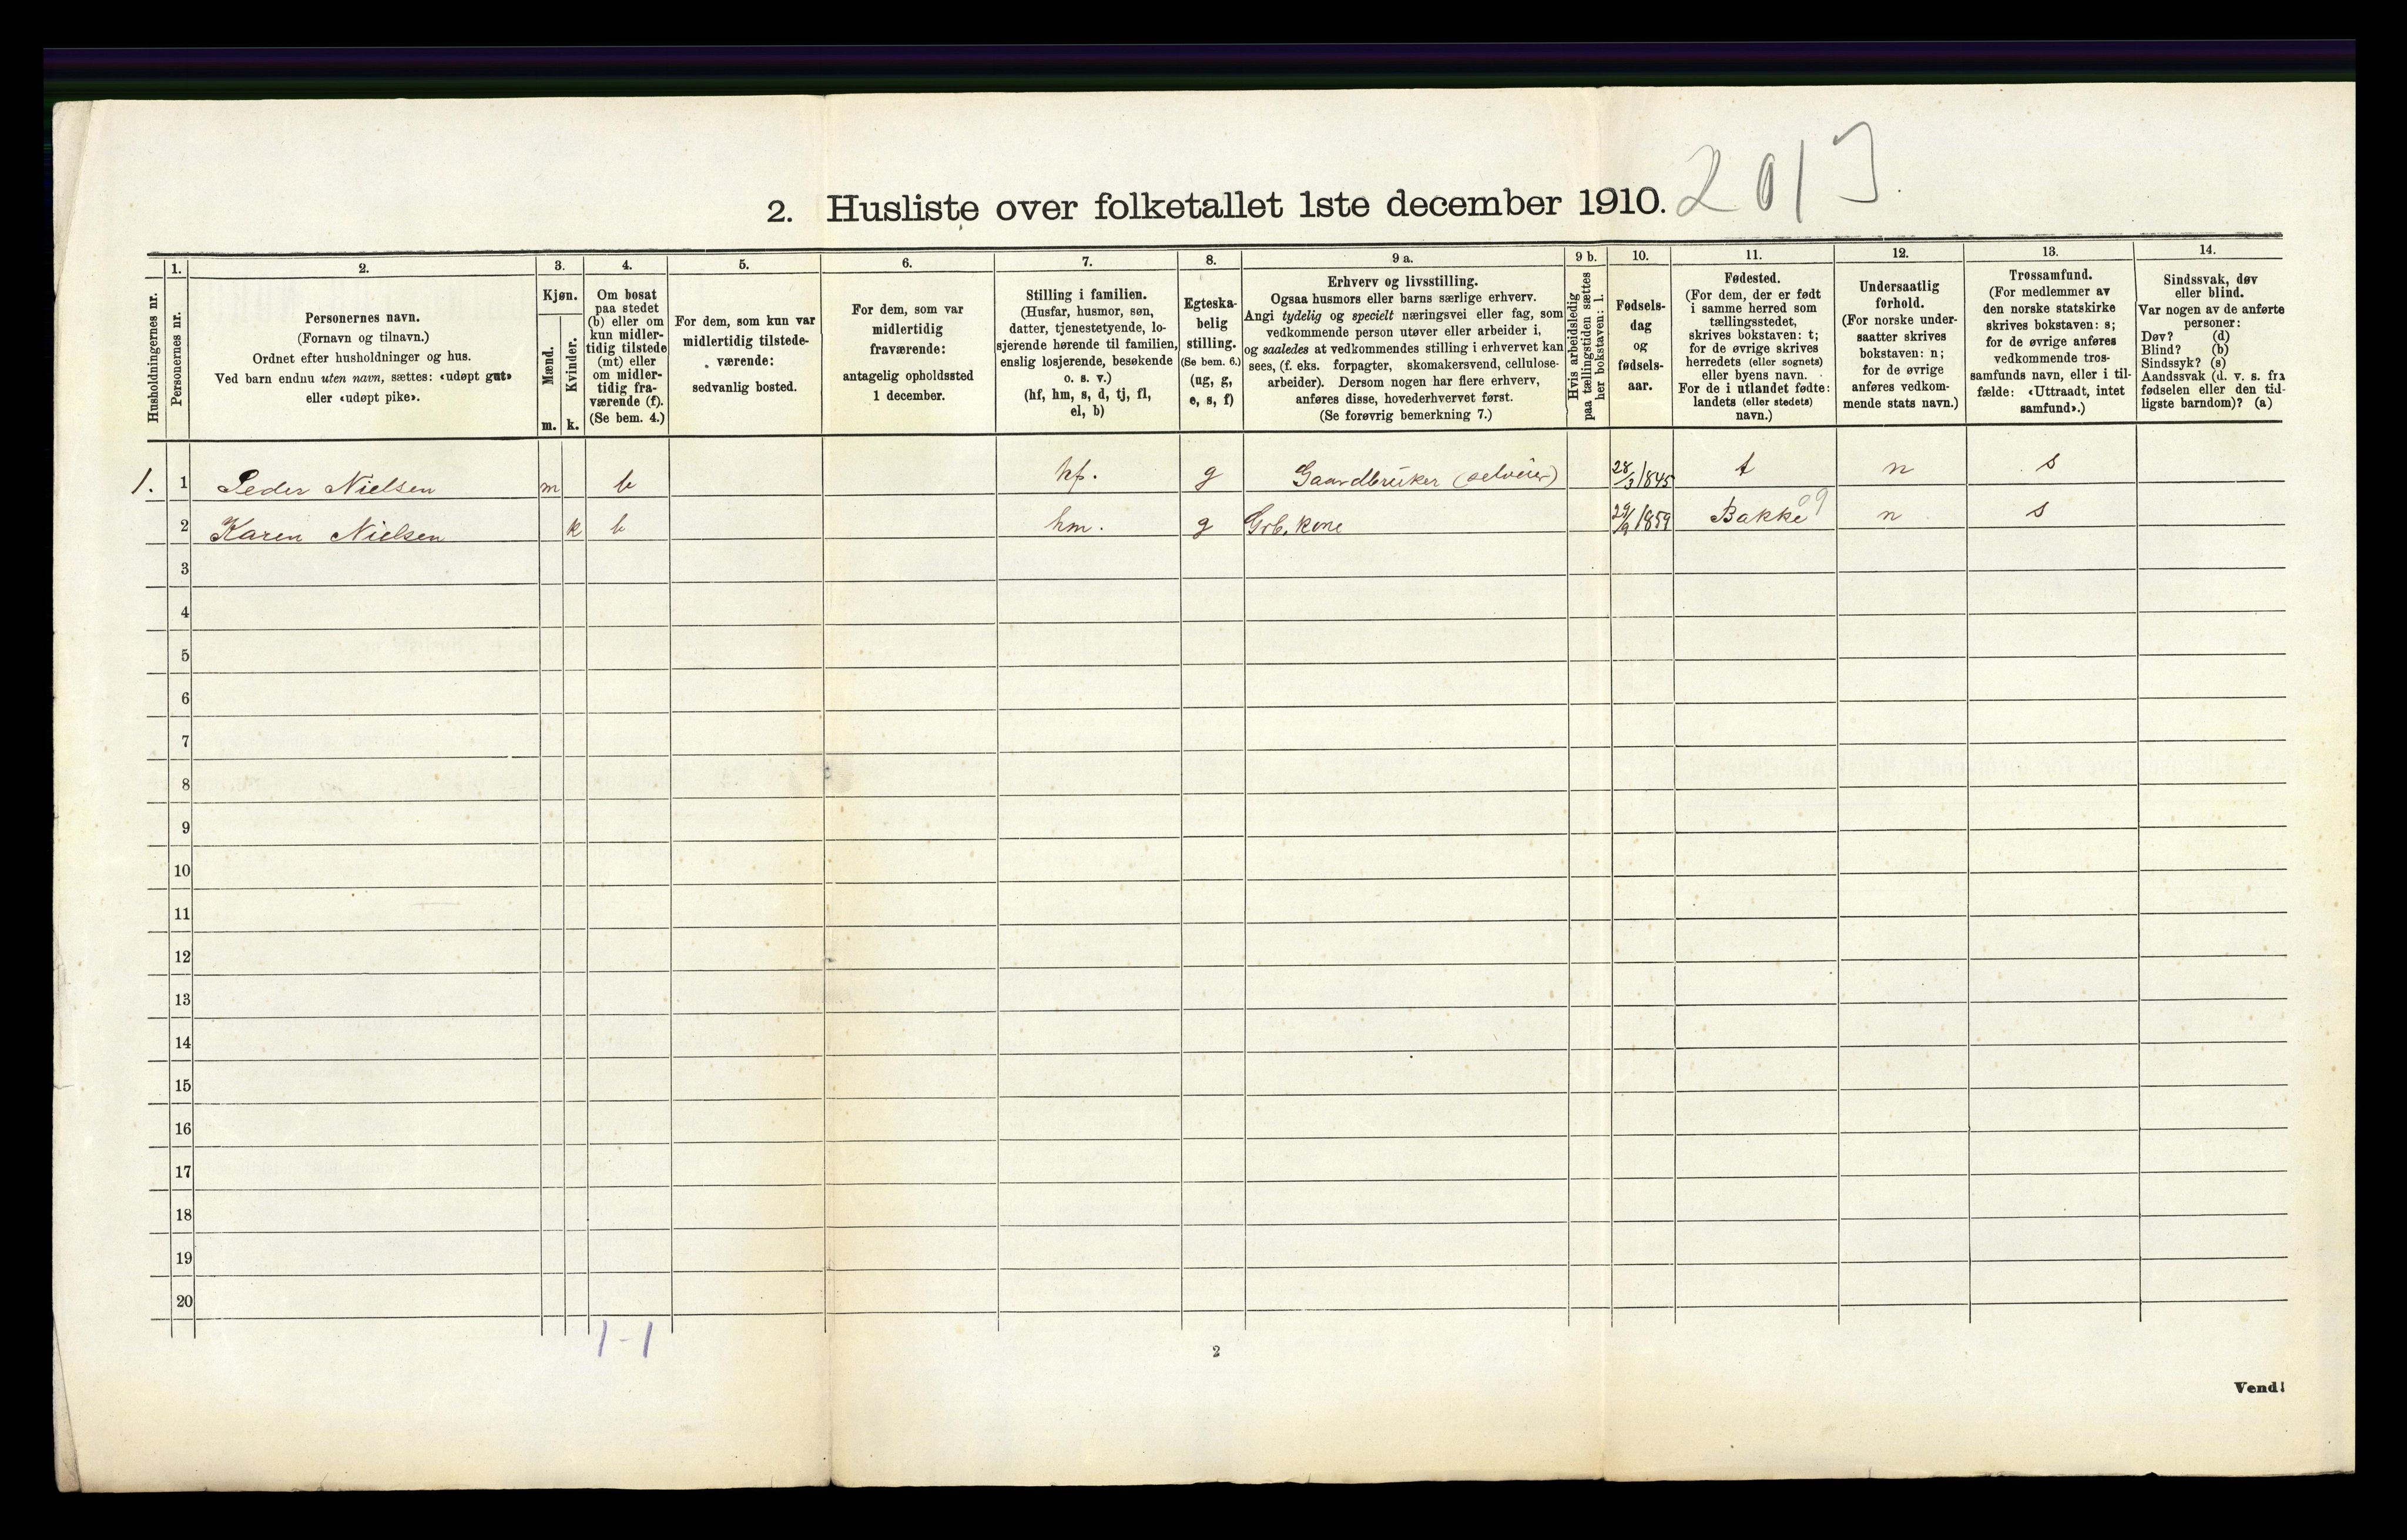 2. Husliste over folketallet 1ste december 1910.
2013
Husholdningernes nr.
1.
Personernes nr.
2.
Personernes navn.
(Fornavn og tilnavn.)
Ordnet efter husholdninger og hus.
Ved barn endnu uten navn, sættes: «udøpt gut»
eller «udøpt pike».
3.
Kjøn.
Mænd.
m.
Kvinder.
k.
4.
Om bosat
paa stedet
(b) eller om
kun midler-
tidig tilstede
(mt) eller
om midler-
tidig fra-
værende (f).
(Se bem. 4.)
5.
For dem, som kun var
midlertidig tilstede-
værende:
sedvanlig bosted.
6.
For dem, som var
midlertidig
fraværende:
antagelig opholdssted
1 december.
7.
Stilling i familien.
(Husfar, husmor, søn,
datter, tjenestetyende, lo-
sjerende hørende til familien,
enslig losjerende, besøkende
o. s. v.)
(hf, hm, s, d, tj, fl,
el, b)
8.
Egteska-
belig
stilling.
(Se bem. 6.)
(ug, g,
e, s, f)
9 a.
Erhverv og livsstilling.
Ogsaa husmors eller barns særlige erhverv.
Angi tydelig og specielt næringsvei eller fag, som
vedkommende person utøver eller arbeider i,
og saaledes at vedkommendes stilling i erhvervet kan
sees, (f. eks. forpagter, skomakersvend, cellulose-
arbeider). Dersom nogen har flere erhverv,
anføres disse, hovederhvervet først.
(Se forøvrig bemerkning 7.)
9 b.
Hvis arbeidsledig
paa tællingstiden sættes
her bokstaven: l.
10.
Fødsels-
dag
og
fødsels-
aar.
11.
Fødested.
(For dem, der er født
i samme herred som
tællingsstedet,
skrives bokstaven: t;
for de øvrige skrives
herredets (eller sognets)
eller byens navn.
For de i utlandet fødte:
landets (eller stedets)
navn.)
12.
Undersaatlig
forhold.
(For norske under-
saatter skrives
bokstaven: n;
for de øvrige
anføres vedkom-
mende stats navn.)
13.
Trossamfund.
(For medlemmer av
den norske statskirke
skrives bokstaven: s;
for de øvrige anføres
vedkommende tros-
samfunds navn, eller i til-
fælde: «Uttraadt, intet
samfund».)
14.
Sindssvak, døv
eller blind.
Var nogen av de anførte
personer:
Døv? (d)
Blind? (b)
Sindssyk? (s)
Aandssvak (d. v. s. fra
fødselen eller den tid-
ligste barndom)? (a)
1. 1 Peder Nielsen m b hf. g Gaardbruker (selveier) 28/3 1845 t n s
2 Karen Nielsen k b hm. g Grb. kone 29/9 1859 Bakke 09 n s
3
4
5
6
7
8
9
10
11
12
13
14
15
16
17
18
19
20
1-1
2
Vend!